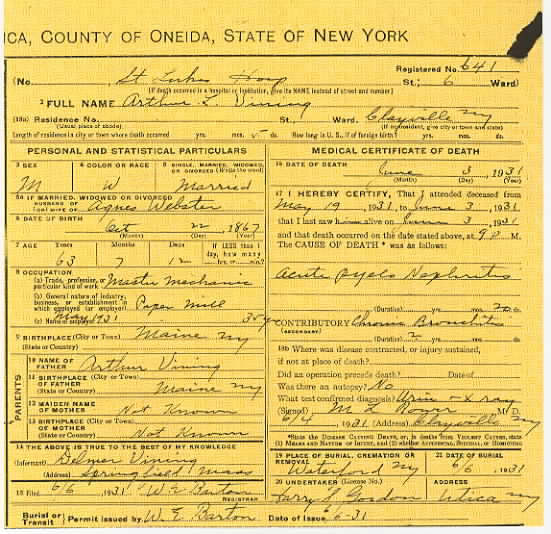 ICA, COUNTY OF ONEIDA, STATE OF NEW YORK
Registered No. 641
(No. St Lukes Hosp St.; 6 Ward)
(If death occurred in a hospital or institution, give its NAME instead of street and number)
2 FULL NAME Arthur L. Vining
(18a) Residence No. St., Ward. Clayville NY
(Usual place of abode) (If nonresident, give city or town and state)
Length of residence in city or town where death occurred yrs. mos. ds. How long in U. S., if of foreign birth? yrs. mos. ds.
PERSONAL AND STATISTICAL PARTICULARS
3 SEX 4 COLOR OR RACE 5 SINGLE, MARRIED, WIDOWED, OR DIVORCED (Write the word)
M W Married
5a IF MARRIED, WIDOWED OR DIVORCED
HUSBAND OF
(or) WIFE OF Agnes Webster
6 DATE OF BIRTH
Oct 22, 1867
(Month) (Day) (Year)
7 AGE Years Months Days IF LESS than 1 day, how many hrs. or min.?
63 7 12
8 OCCUPATION
(a) Trade, profession, or particular kind of work Master Mechanic
(b) General nature of industry, business, or establishment in which employed (or employer) Paper Mill
(c) Name of employer
May 1931 35 yr
9 BIRTHPLACE (City or Town) Maine NY
(State or Country)
PARENTS
10 NAME OF FATHER Arthur Vining
11 BIRTHPLACE OF FATHER (City or Town)
(State or Country) Maine NY
12 MAIDEN NAME OF MOTHER Not Known
13 BIRTHPLACE OF MOTHER (City or Town)
(State or Country) Not Known
14 THE ABOVE IS TRUE TO THE BEST OF MY KNOWLEDGE
(Informant) Delmar Vining
(Address) Springfield Mass
15 Filed 6/6, 1931 W. E. Barton
REGISTRAR
Burial or Transit Permit issued by W. E. Barton Date of Issue 6/6-31
MEDICAL CERTIFICATE OF DEATH
16 DATE OF DEATH
June 3, 1931
(Month) (Day) (Year)
17 I HEREBY CERTIFY, That I attended deceased from
May 19, 1931, to June 3, 1931
that I last saw him alive on June 3, 1931
and that death occurred on the date stated above, at 9 P. M.
The CAUSE OF DEATH * was as follows:
Acute Pyelo Nephritis
(Duration) yrs. mos. 20 ds.
CONTRIBUTORY Chronic Bronchitis
(SECONDARY)
(Duration) 2 yrs. mos. ds.
18b Where was disease contracted, or injury sustained,
if not at place of death?
Did an operation precede death? Date of
Was there an autopsy? No
What test confirmed diagnosis? Urine - X ray
(Signed) M. L. M. D.
6/4, 1931 (Address) Clayville NY
*State the DISEASE CAUSING DEATH, or, in deaths from VIOLENT CAUSES, state (1) MEANS AND NATURE OF INJURY, and (2) whether ACCIDENTAL, SUICIDAL, or HOMICIDAL
19 PLACE OF BURIAL, CREMATION OR REMOVAL 21 DATE OF BURIAL
Waterford NY 6/6, 1931
20 UNDERTAKER (License No.) ADDRESS
Larry S Gordon Utica NY